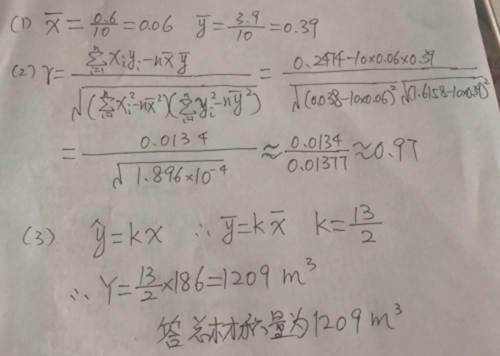 (1) x̄ = 0.6/10 = 0.06 ȳ = 3.9/10 = 0.39
(2) r = (∑ᵢ₌₁ⁿ xᵢyᵢ - nx̄ȳ) / √((∑ᵢ₌₁ⁿ xᵢ² - nx̄²)(∑ᵢ₌₁ⁿ yᵢ² - nȳ²)) = (0.2474 - 10×0.06×0.39) / (√(0.038 - 10×0.06²) √(1.6158 - 10×0.39²))
= 0.0134 / √(1.896×10⁻⁴) ≈ 0.0134/0.01377 ≈ 0.97
(3) ŷ = kx ∴ ȳ = kx̄ k = 13/2
∴ Y = 13/2 × 186 = 1209 m³
答总材积量为1209 m³